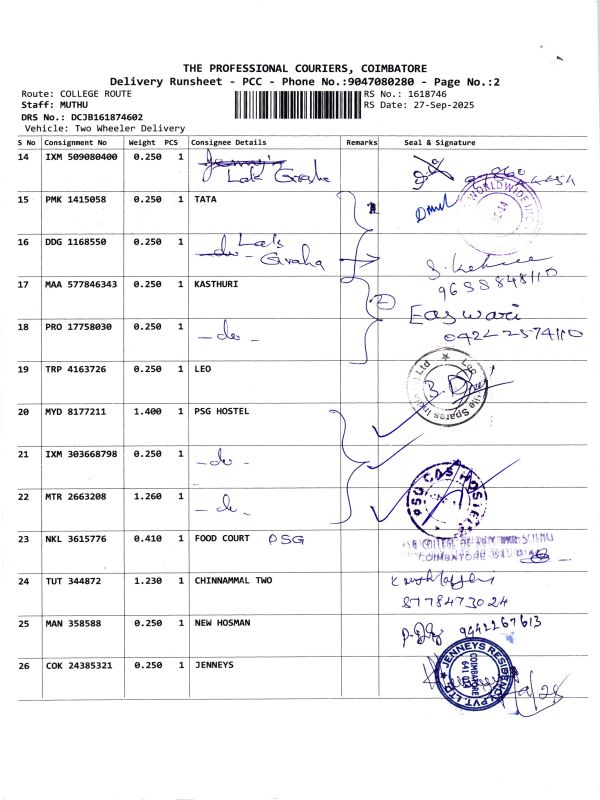 THE PROFESSIONAL COURIERS, COIMBATORE
Delivery Runsheet - PCC - Phone No.:9047080280 - Page No.:2
Route: COLLEGE ROUTE RS No.: 1618746
Staff: MUTHU RS Date: 27-Sep-2025
DRS No.: DCJB161874602
Vehicle: Two Wheeler Delivery
S No Consignment No Weight PCS Consignee Details Remarks Seal & Signature
14 IXM 509080400 0.250 1 Lak Graha
15 PMK 1415058 0.250 1 TATA WORLDWIDE
16 DDG 1168550 0.250 1 Lak Graha
9658848110
17 MAA 577846343 0.250 1 KASTHURI 2 Easwari
0422 2574110
18 PRO 17758030 0.250 1 - do -
19 TRP 4163726 0.250 1 LEO
20 MYD 8177211 1.400 1 PSG HOSTEL
21 IXM 303668798 0.250 1 - do -
22 MTR 2663208 1.260 1 - do - PSG CAS HOSTEL
23 NKL 3615776 0.410 1 FOOD COURT PSG
COIMBATORE
24 TUT 344872 1.230 1 CHINNAMMAL TWO
8778473024
25 MAN 358588 0.250 1 NEW HOSMAN 9442267613
26 COK 24385321 0.250 1 JENNEYS JENNEYS RESIDENCY PVT. LTD. COIMBATORE